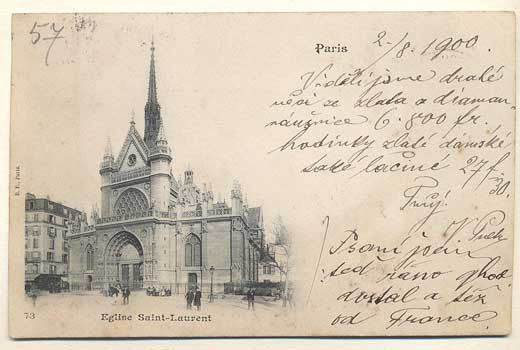 57
Paris
2./8. 1900.
Viděli jsme drahé
věci ze zlata a diaman.
náušnice 6.800 fr.
hodinky zlaté dámské
také laciné 27 f
30.
Psaní jsem
teď ráno
dostal a též
od France.
B. F., Paris.
73
Eglise Saint-Laurent